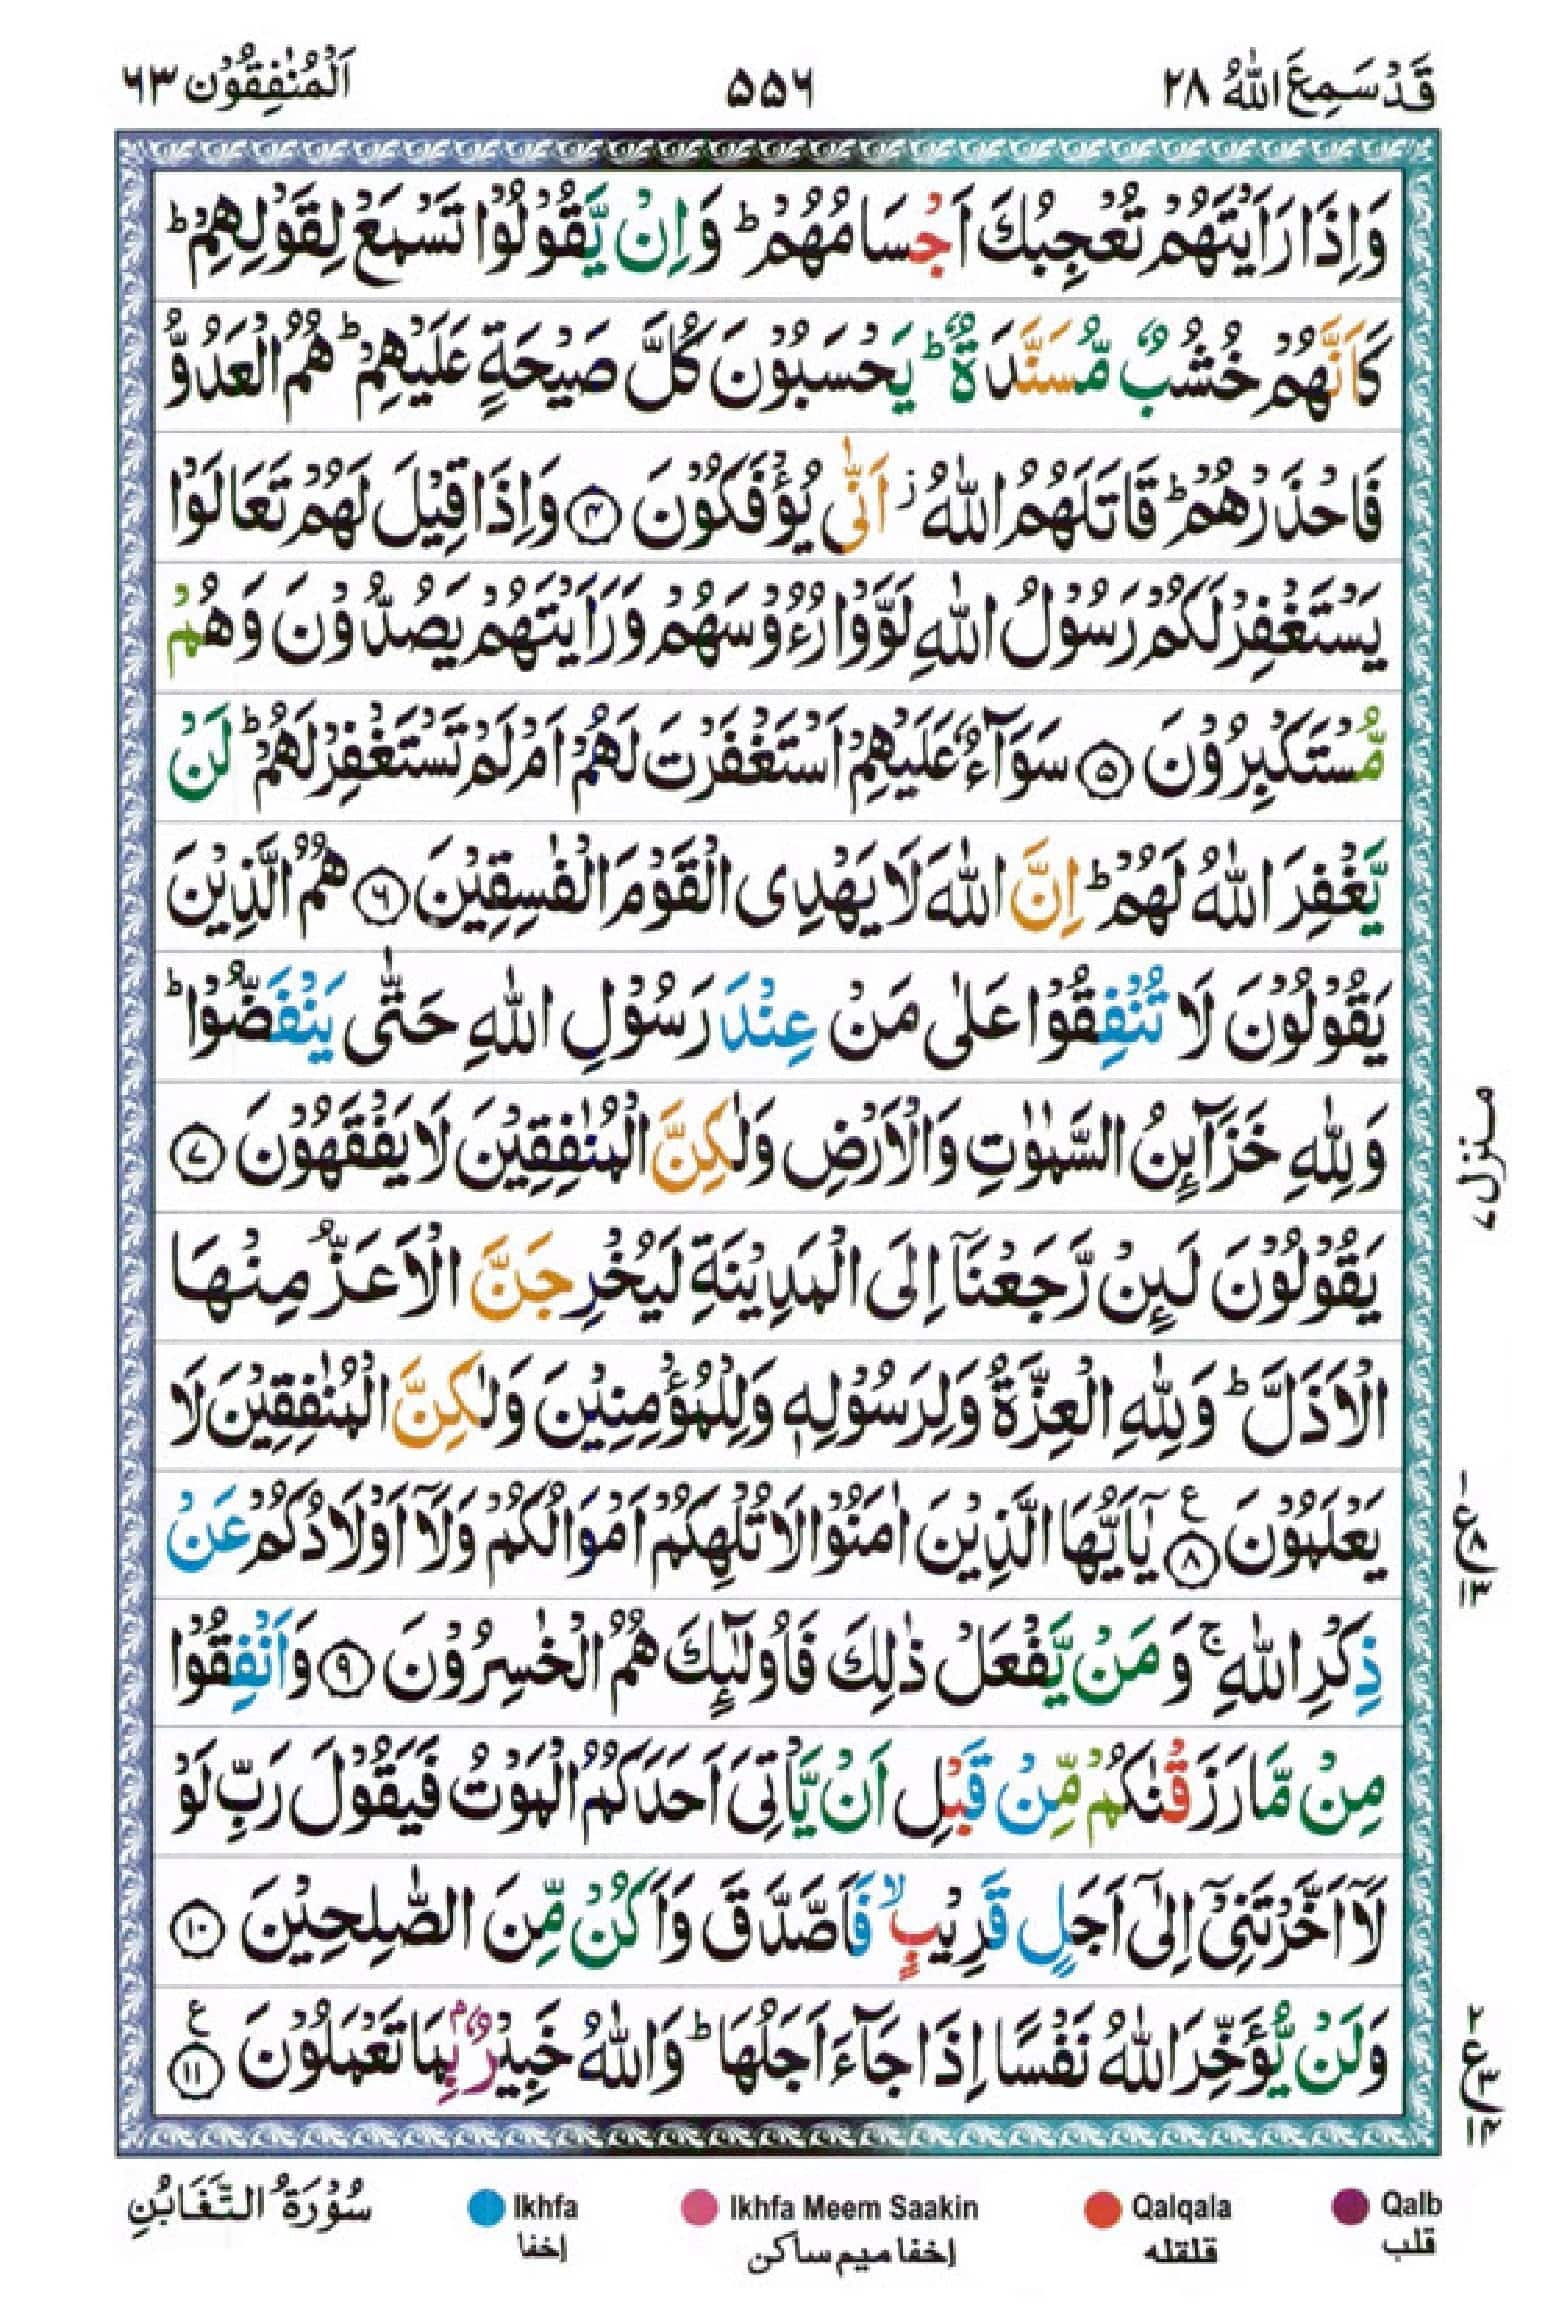 قَدْ سَمِعَ اللّٰهُ ۲۸
۵۵۶
اَلْمُنٰفِقُوْن ۶۳
وَاِذَا رَاَيْتَهُمْ تُعْجِبُكَ اَجْسَامُهُمْ ؕ وَاِنْ يَّقُوْلُوْا تَسْمَعْ لِقَوْلِهِمْ ؕ
كَاَنَّهُمْ خُشُبٌ مُّسَنَّدَةٌ ؕ يَحْسَبُوْنَ كُلَّ صَيْحَةٍ عَلَيْهِمْ ؕ هُمُ الْعَدُوُّ
فَاحْذَرْهُمْ ؕ قَاتَلَهُمُ اللّٰهُ ؗ اَنّٰى يُؤْفَكُوْنَ ۴ وَاِذَا قِيْلَ لَهُمْ تَعَالَوْا
يَسْتَغْفِرْ لَكُمْ رَسُوْلُ اللّٰهِ لَوَّوْا رُءُوْسَهُمْ وَرَاَيْتَهُمْ يَصُدُّوْنَ وَهُمْ
مُّسْتَكْبِرُوْنَ ۵ سَوَآءٌ عَلَيْهِمْ اَسْتَغْفَرْتَ لَهُمْ اَمْ لَمْ تَسْتَغْفِرْ لَهُمْ ؕ لَنْ
يَّغْفِرَ اللّٰهُ لَهُمْ ؕ اِنَّ اللّٰهَ لَا يَهْدِى الْقَوْمَ الْفٰسِقِيْنَ ۶ هُمُ الَّذِيْنَ
يَقُوْلُوْنَ لَا تُنْفِقُوْا عَلٰى مَنْ عِنْدَ رَسُوْلِ اللّٰهِ حَتّٰى يَنْفَضُّوْا ؕ
وَلِلّٰهِ خَزَآئِنُ السَّمٰوٰتِ وَالْاَرْضِ وَلٰكِنَّ الْمُنٰفِقِيْنَ لَا يَفْقَهُوْنَ ۷
يَقُوْلُوْنَ لَئِنْ رَّجَعْنَاۤ اِلَى الْمَدِيْنَةِ لَيُخْرِجَنَّ الْاَعَزُّ مِنْهَا
الْاَذَلَّ ؕ وَلِلّٰهِ الْعِزَّةُ وَلِرَسُوْلِهٖ وَلِلْمُؤْمِنِيْنَ وَلٰكِنَّ الْمُنٰفِقِيْنَ لَا
يَعْلَمُوْنَ ۸ يٰۤاَيُّهَا الَّذِيْنَ اٰمَنُوْا لَا تُلْهِكُمْ اَمْوَالُكُمْ وَلَاۤ اَوْلَادُكُمْ عَنْ
ذِكْرِ اللّٰهِ ۚ وَمَنْ يَّفْعَلْ ذٰلِكَ فَاُولٰٓئِكَ هُمُ الْخٰسِرُوْنَ ۹ وَاَنْفِقُوْا
مِنْ مَّا رَزَقْنٰكُمْ مِّنْ قَبْلِ اَنْ يَّاْتِىَ اَحَدَكُمُ الْمَوْتُ فَيَقُوْلَ رَبِّ لَوْ
لَاۤ اَخَّرْتَنِىْۤ اِلٰٓى اَجَلٍ قَرِيْبٍ ۙ فَاَصَّدَّقَ وَاَكُنْ مِّنَ الصّٰلِحِيْنَ ۱۰
وَلَنْ يُّؤَخِّرَ اللّٰهُ نَفْسًا اِذَا جَآءَ اَجَلُهَا ؕ وَاللّٰهُ خَبِيْرٌۢ بِمَا تَعْمَلُوْنَ ۱۱
منزل ۷
۱
ع ۸
۱۳
۲
ع ۳
۱۴
Qalb
قلب
Qalqala
قلقله
Ikhfa Meem Saakin
إخفا ميم ساكن
Ikhfa
إخفا
سُوْرَةُ التَّغَابُنِ